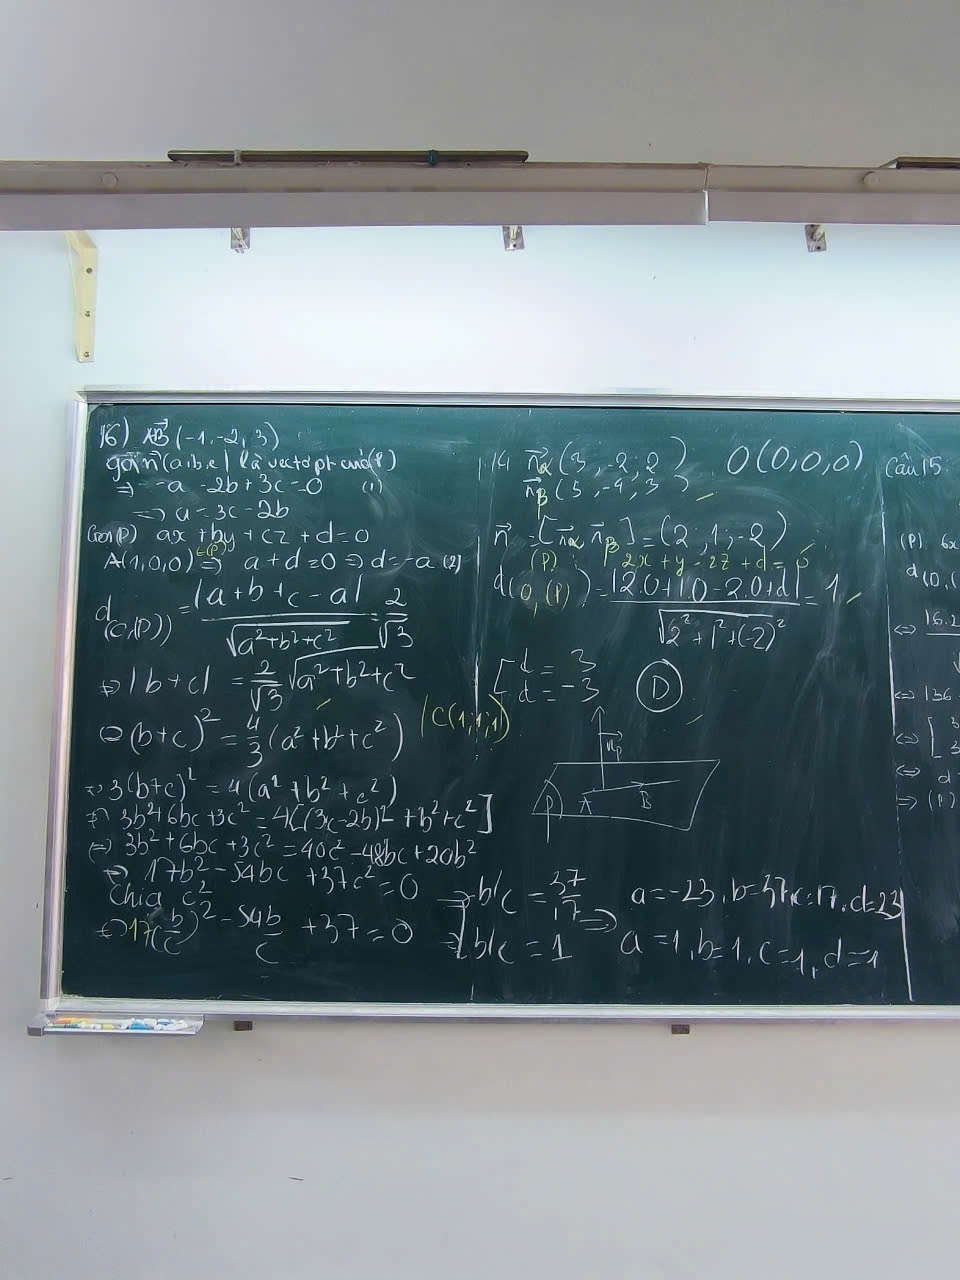 16) AB (-1, -2, 3)
gọi n (a,b,c) là vectơ pt của (P)
=> -a -2b + 3c = 0 (1)
=> a = 3c - 2b
Gọi (P) ax + by + cz + d = 0
A(1,0,0) ∈(P) => a + d = 0 => d = -a (2)
d(C,(P)) = |a + b + c - a| / √(a² + b² + c²) = 2/√3
=> |b + c| = 2/√3 √(a² + b² + c²)
C(1;1;1)
⇔ (b+c)² = 4/3 (a² + b² + c²)
⇔ 3(b+c)² = 4(a² + b² + c²)
⇔ 3b² + 6bc + 3c² = 4[(3c-2b)² + b² + c²]
⇔ 3b² + 6bc + 3c² = 40c² - 48bc + 20b²
⇔ 17b² - 54bc + 37c² = 0
Chia c²
⇔ 17(b/c)² - 54b/c + 37 = 0
=> b/c = 37/17 => a = -23, b = 37, c = 17, d = 23
=> b/c = 1 a = 1, b = 1, c = 1, d = -1
14 nα (3, -2, 2) O(0,0,0)
nβ (5, -4, 3)
n(P) = [nα nβ] = (2; 1; -2)
(P) 2x + y - 2z + d = 0
d(O,(P)) = |2.0 + 1.0 - 2.0 + d| / √(2² + 1² + (-2)²) = 1
[ d = 3
d = -3
D
nP
P A B
Câu 15
(P) 6x
d(0,(
⇔ 16.2
⇔ |36
⇔ [ 3
3
⇔ d
=> (P)